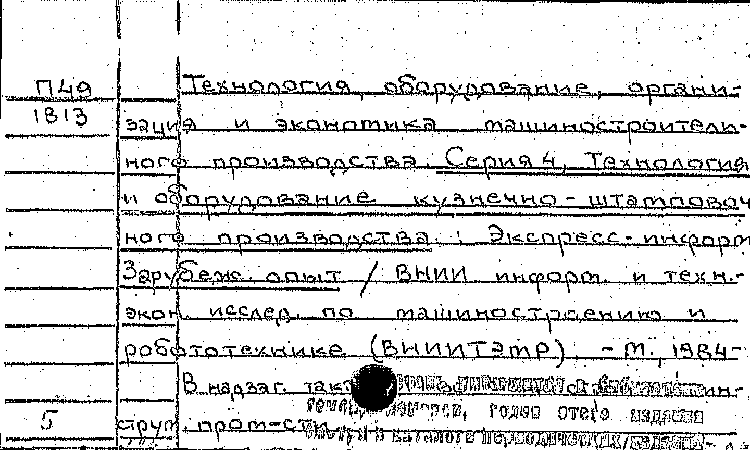 П49 Технология, оборудование, органи-
1813 зация и экономика машинострoитель-
ного производства. Серия 4, Технология
и оборудование кузнечно-штамповоч
ного производства : Экспресс-информ
Зарубеж. опыт / ВНИИ информ. и техн.-
экон. исслед. по машиностроению и
робототехнике (ВНИИТЭМР). - М., 1984-
В надзаг. также
номера, годах этого издания
5 струм. пром-сти